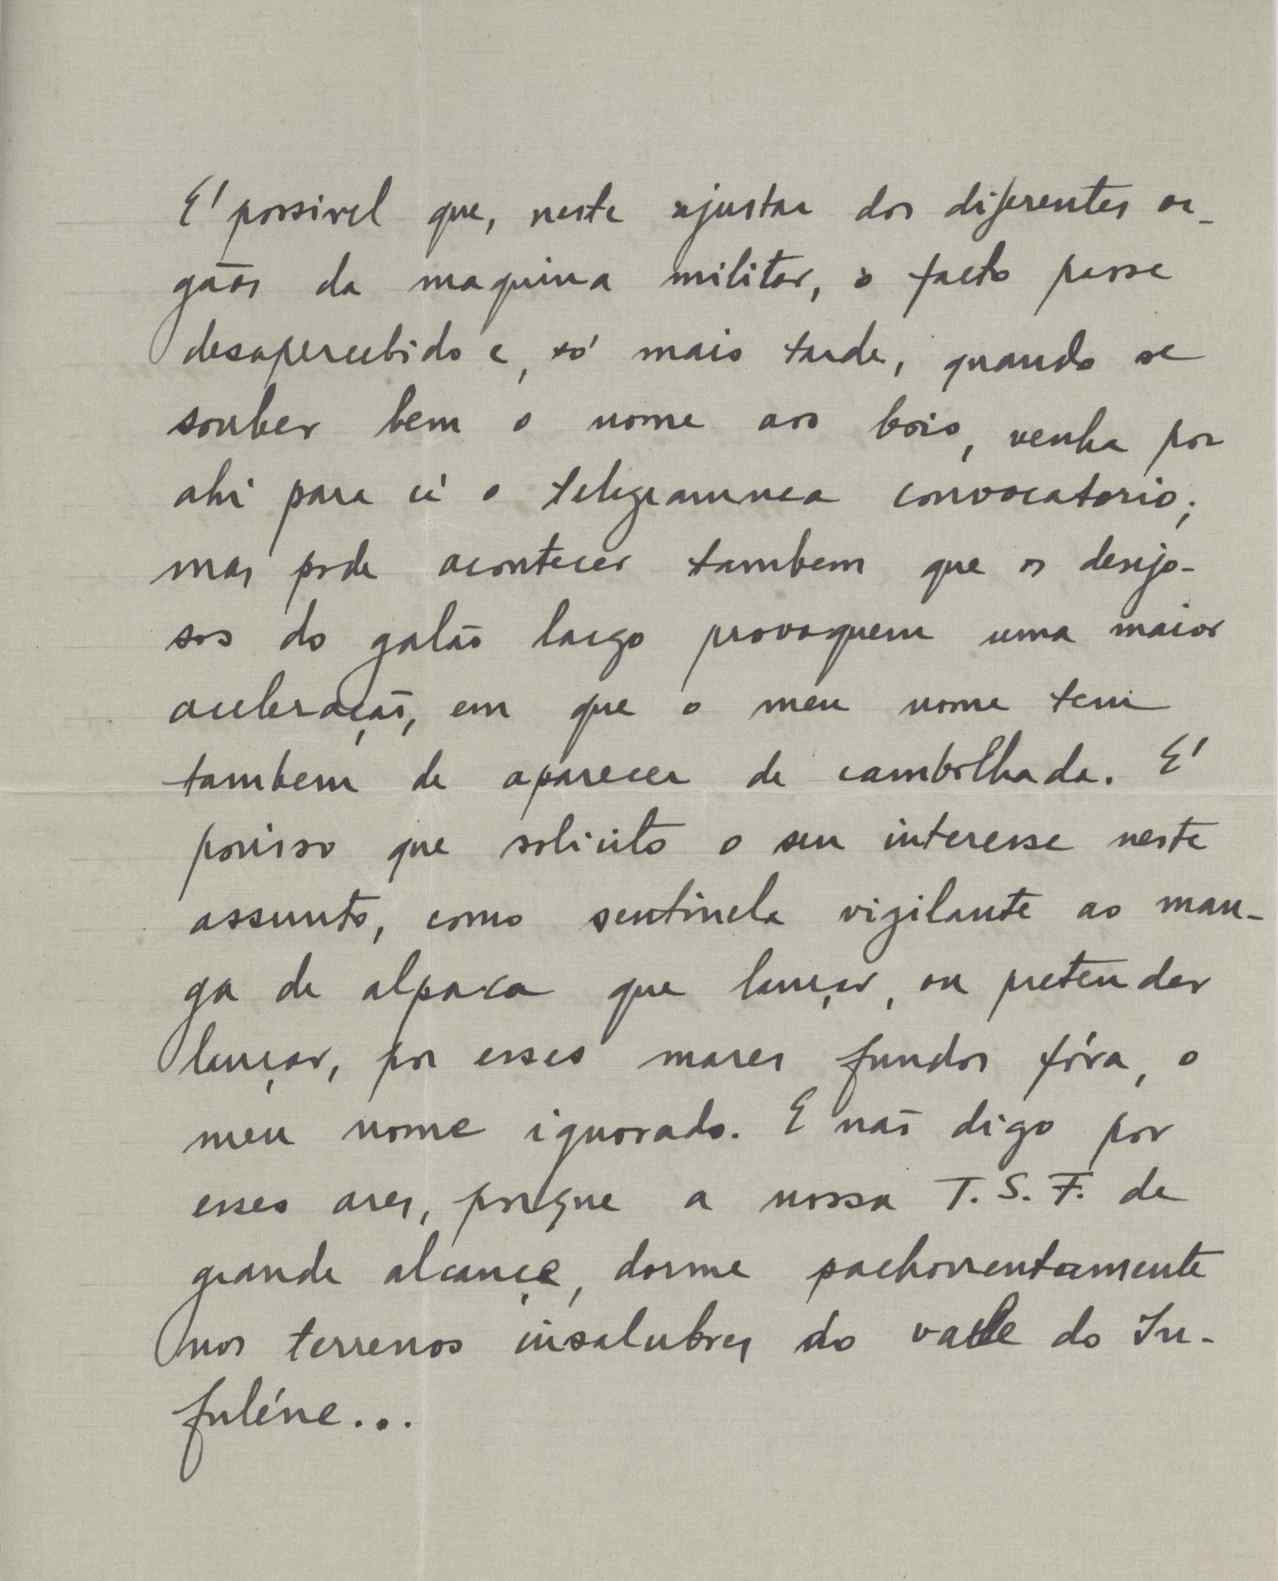 E' possivel que, neste ajustar dos diferentes or-
gãos da maquina militar, o facto passe
desapercebido e, só mais tarde, quando se
souber bem o nome aos bois, venha por
ahi para cá o telegramma convocatorio;
mas pode acontecer tambem que os desejo-
sos do galão largo provoquem uma maior
aceleração, em que o meu nome tem
tambem de aparecer de cambolhada. E'
porisso que solicito o seu interesse neste
assunto, como sentinela vigilante ao man-
ga de alpaca que lançar, ou pretender
lançar, por esses mares fundos fóra, o
meu nome ignorado. E não digo por
esses ares, porque a nossa T. S. F. de
grande alcançe, dorme pachorrentamente
nos terrenos insalubres do valle do In-
fuléne...